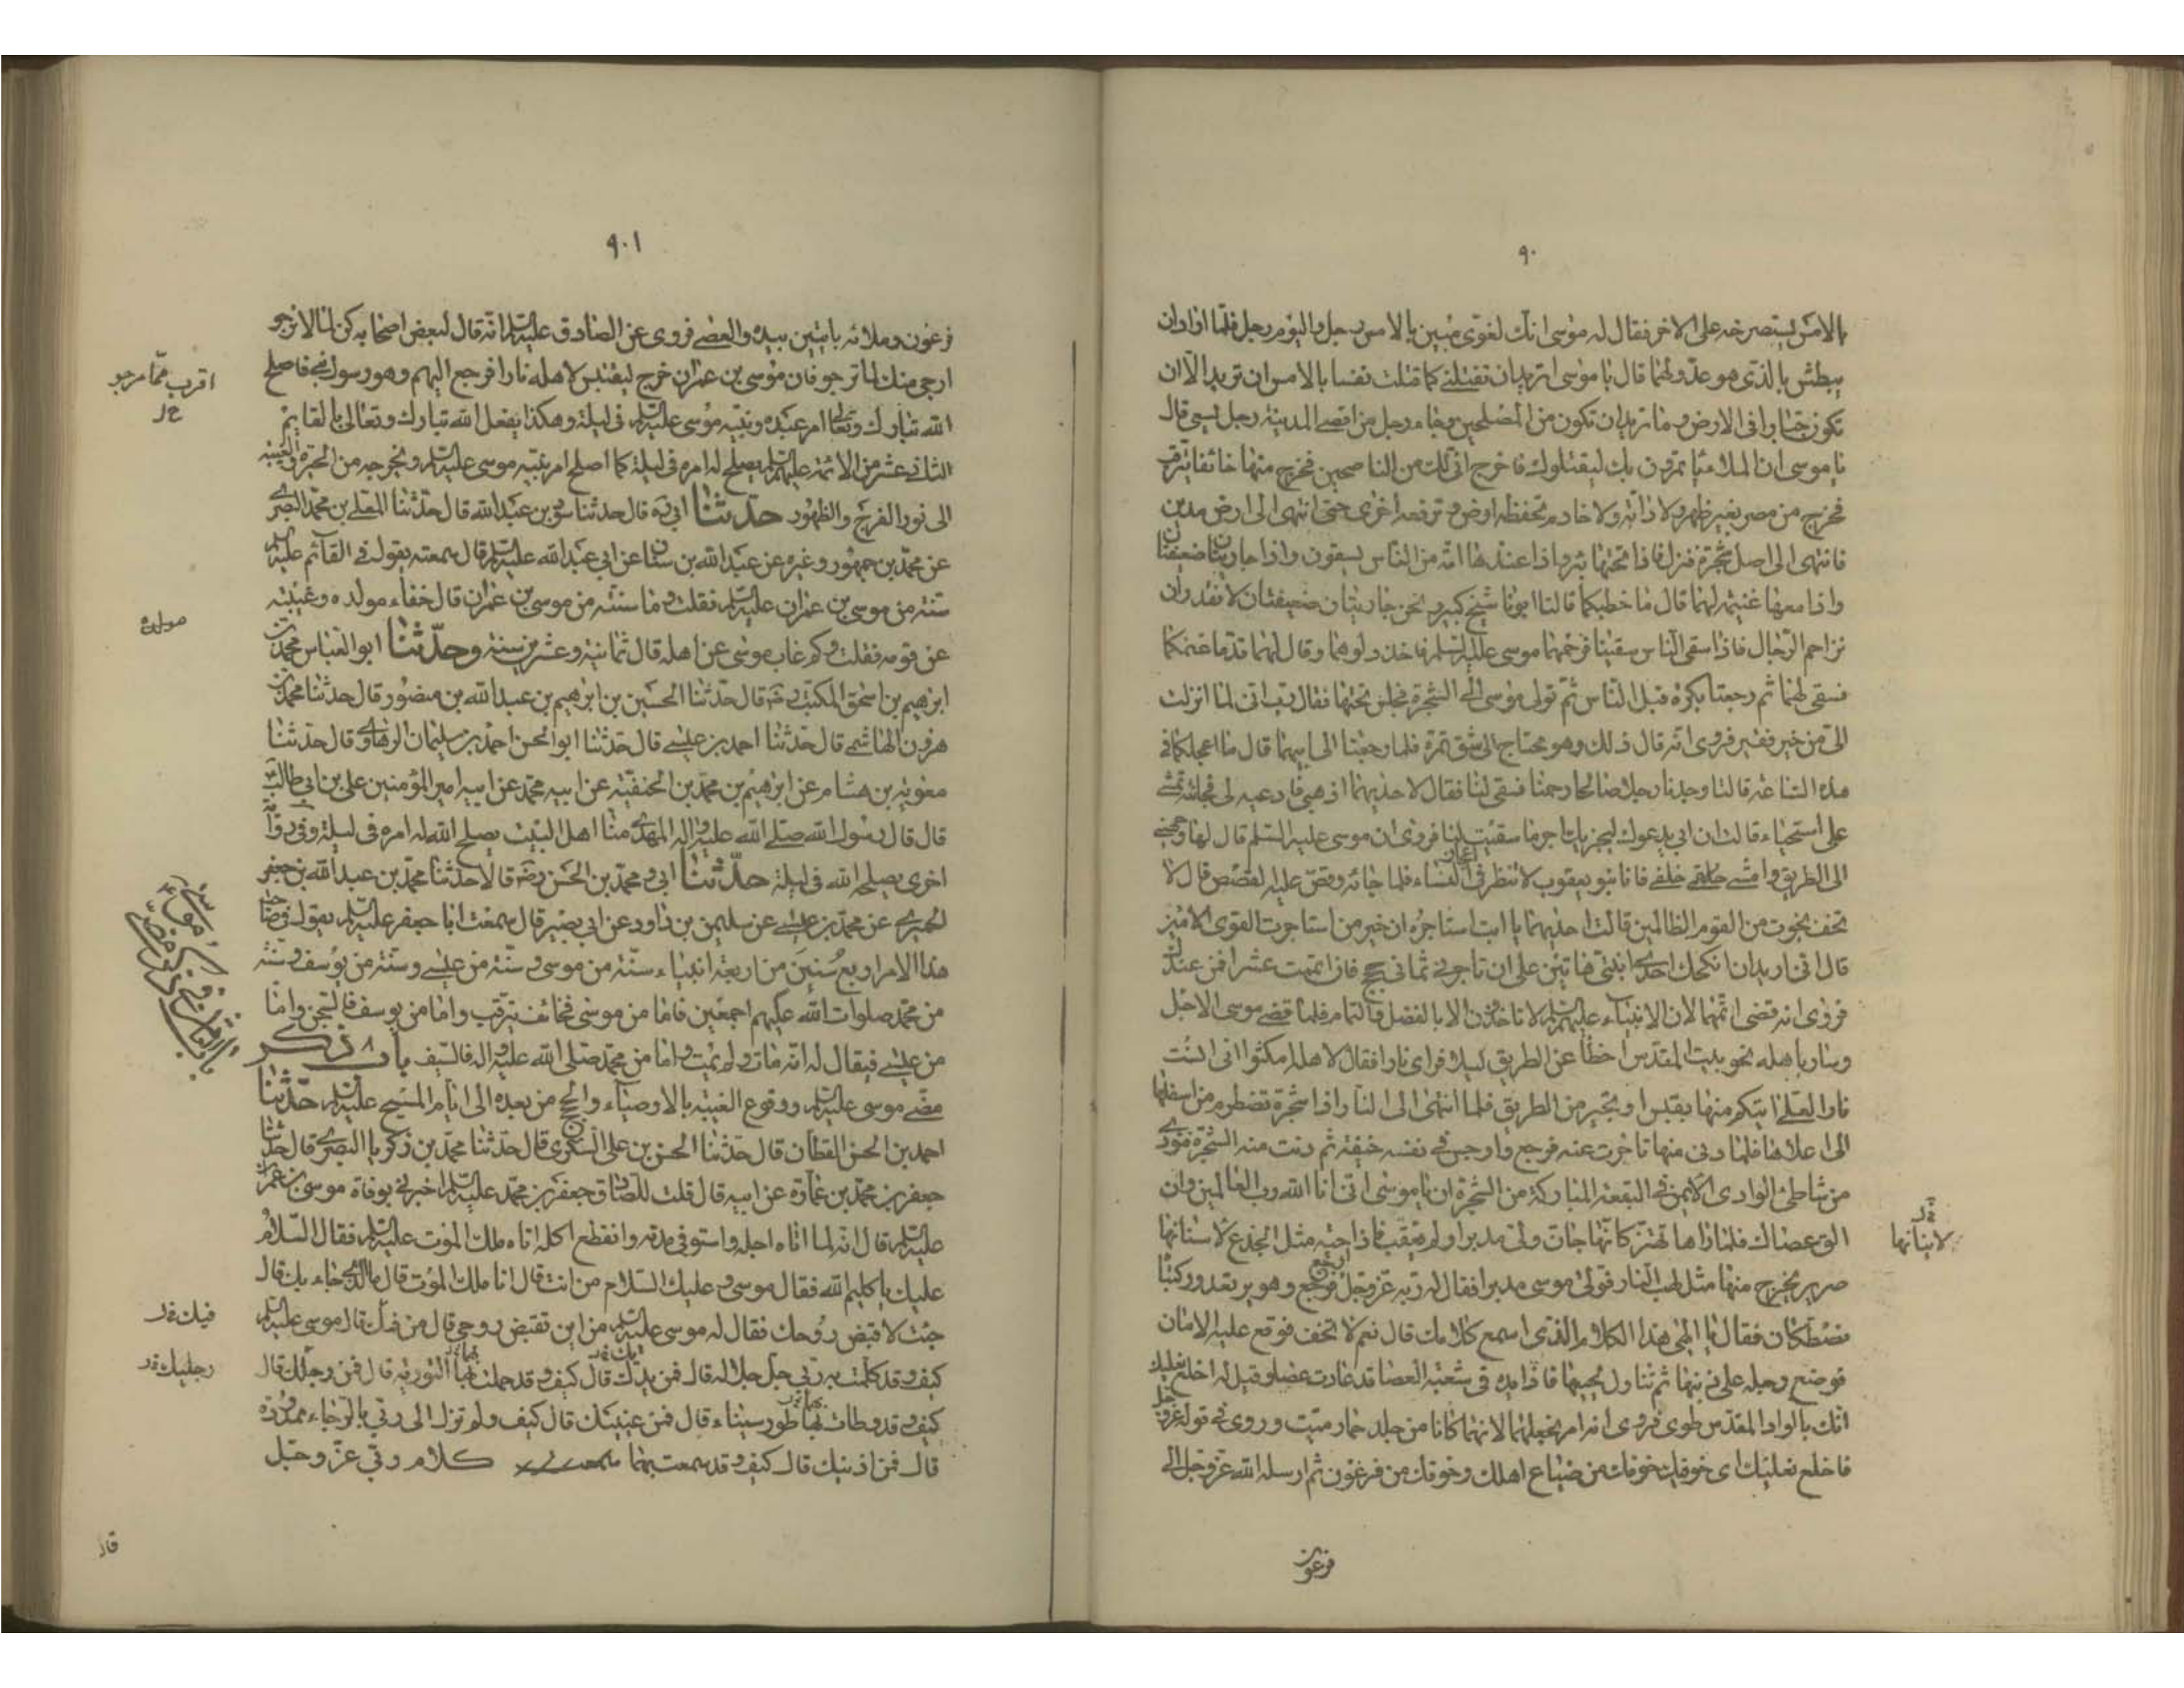 ٩٠
بالامس يستصرخه على الاخر فقال له موسى انك لغوى مبين بالامس رجل واليوم رجل فلما اراد ان
يبطش بالذى هو عدو لهما قال يا موسى اتريد ان تقتلنى كما قتلت نفسا بالامس ان تريد الا ان
تكون جبارا فى الارض وما تريد ان تكون من المصلحين وجاء رجل من اقصى المدينة رجل يسعى قال
يا موسى ان الملا ياتمرون بك ليقتلوك فاخرج انى لك من الناصحين فخرج منها خائفا يترقب
فخرج من مصر بغير ظهر ولا دابة ولا خادم تخفظه ارض وترفعه اخرى حتى انتهى الى ارض مدين
فانتهى الى اصل شجرة فنزل فاذا تحتها بئر واذا عندها امة من الناس يسقون واذا جاريتان ضعيفتان
واذا معهما غنيمة لهما قال ما خطبكما قالتا ابونا شيخ كبير ونحن جاريتان ضعيفتان لا نقدر ان
نزاحم الرجال فاذا سقى الناس سقينا فرحمهما موسى عليه السلم فاخذ دلوهما وقال لهما قدما غنمكما
فسقى لهما ثم رجعتا بكرة قبل الناس ثم تولى موسى الى الشجرة فجلس تحتها فقال رب انى لما انزلت
الى من خير فقير فروى انه قال ذلك وهو محتاج الى شق تمرة فلما رجعتا الى ابيهما قال ما اعجلكما فى
هذه الساعة قالتا وجدنا رجلا صالحا رحمنا فسقى لنا فقال لاحديهما اذهبى فادعيه لى فجائته تمشى
على استحياء قالت ان ابى يدعوك ليجزيك اجر ما سقيت لنا فروى ان موسى عليه السلم قال لها وجهنى
الى الطريق وامشى خلفى فانا بنو يعقوب لا ننظر فى اعجاز النساء فلما جائه وقص عليه القصص قال لا
تخف نجوت من القوم الظالمين قالت احديهما يا ابت استاجره ان خير من استاجرت القوى الامين
قال انى اريد ان انكحك احدى ابنتى هاتين على ان تاجرنى ثمانى حجج فان اتممت عشرا فمن عندك
فروى انه قضى اتمهما لان الانبياء عليهم السلم لا تاخذون الا بالفضل والتمام فلما قضى موسى الاجل
وسار باهله نحو بيت المقدس اخطا عن الطريق ليلا فراى نارا فقال لاهله امكثوا انى انست
نارا لعلى اتيكم منها بقبس او بخبر من الطريق فلما انتهى الى النار اذا شجرة تضطرم من اسفلها
الى اعلاها فلما دنى منها تاخرت عنه فرجع واوجس فى نفسه خيفة ثم دنت منه الشجرة فنودى
من شاطئ الوادى الايمن فى البقعة المباركة من الشجرة ان يا موسى انى انا الله رب العالمين وان
الق عصاك فلما راها تهتز كانها جان ولى مدبرا ولم يعقب فاذا حية مثل الجذع لاسنانها
لانيابها خ‍ل
صرير يخرج منها مثل لهب النار فولى موسى مدبرا فقال له ربه عز وجل ارجع فرجع وهو يرتعد وركبتاه
تصطكان فقال يا الهى هذا الكلام الذى اسمع كلامك قال نعم لا تخف فوقع عليه الامان
فوضع رجله على ذنبها ثم تناول لحييها فاذا يده فى شعبة العصا قد عادت عصا وقيل له اخلع نعليك
انك بالواد المقدس طوى فروى انه امر بخلعهما لانهما كانا من جلد حمار ميت وروى فى قوله عز وجل
فاخلع نعليك اى خوفيك خوفك من ضياع اهلك وخوفك من فرعون ثم ارسله الله عز وجل الى
فرعون
٩٠١
فرعون وملائه بايتين بيده والعصى فروى عن الصادق عليه السلم انه قال لبعض اصحابه كن لما لا ترجو
ارجى منك لما ترجو فان موسى بن عمران خرج ليقتبس لاهله نارا فرجع اليهم وهو رسول نبى فاصلح
اقرب مما مرجو خ‍ل
الله تبارك وتعالى امر عبده ونبيه موسى عليه السلم فى ليلة وهكذا يفعل الله تبارك وتعالى بالقايم
الثانى عشر من الائمة عليهم السلم يصلح له امره فى ليلة كما اصلح امر نبيه موسى عليه السلم ويخرجه من الحيرة والغيبة
الى نور الفرج والظهور حدثنا ابى ره قال حدثنا سعد بن عبد الله قال حدثنا المعلى بن محمد البصرى
عن محمد بن جمهور وغيره عن عبد الله بن سنان عن ابى عبد الله عليه السلم قال سمعته يقول فى القائم عليه السلم
سنة من موسى بن عمران عليه السلم فقلت وما سنته من موسى بن عمران قال خفاء مولده وغيبته
مولده
عن قومه فقلت وكم غاب موسى عن اهله قال ثمانية وعشرين سنة وحدثنا ابو العباس محمد بن
ابرهيم بن اسحق المكتب رضه قال حدثنا الحسين بن ابرهيم بن عبد الله بن منصور قال حدثنا محمد بن
هرون الهاشمى قال حدثنا احمد بن عيسى قال حدثنا ابو الحسن احمد بن سليمان الرهاوى قال حدثنا
معوية بن هشام عن ابرهيم بن محمد بن الحنفية عن ابيه محمد عن ابيه امير المؤمنين على بن ابى طالب ع
قال قال رسول الله صلى الله عليه واله المهدى منا اهل البيت يصلح الله له امره فى ليلة وفى رواية
اخرى يصلحه الله فى ليلة حدثنا ابى و محمد بن الحسن رضه قالا حدثنا محمد بن عبد الله بن جعفر
الحميرى عن محمد بن عيسى عن سليمن بن داود عن ابى بصير قال سمعت ابا جعفر عليه السلم يقول فى صاحب
هذا الامر اربع سنين من اربعة انبياء سنة من موسى وسنة من عيسى وسنة من يوسف وسنة
من محمد صلوات الله عليهم اجمعين فاما من موسى فخائف يترقب واما من يوسف فالسجن واما
من عيسى فيقال له انه مات ولم يمت واما من محمد صلى الله عليه واله فالسيف باب ٨ ذكر
مضى موسى عليه السلم ووقوع الغيبة بالاوصياء والحجج من بعده الى ايام المسيح عليه السلم حدثنا
احمد بن الحسن القطان قال حدثنا الحسن بن على السكرى قال حدثنا محمد بن زكريا البصرى قال حدثنا
جعفر بن محمد بن عمارة عن ابيه قال قلت للصادق جعفر بن محمد عليه السلم اخبرنى بوفاة موسى بن عمران
عليه السلم قال انه لما اتاه اجله واستوفى مدته وانقطع اكله اتاه ملك الموت عليه السلم فقال السلام
عليك يا كليم الله فقال موسى وعليك السلام من انت قال انا ملك الموت قال ما الذى جاء بك قال
جئت لاقبض روحك فقال له موسى عليه السلم من اين تقبض روحى قال من فمك قال موسى عليه السلم
فيك خ‍ل
كيف وقد كلمت به ربى جل جلاله قال فمن يدك قال كيف وقد حملت بهما التورية قال فمن رجلك قال
رجليك خ‍ل
كيف وقد وطات بهما طور سيناء قال فمن عينيك قال كيف ولم تزل الى ربى بالرجاء ممدودة
قال فمن اذنيك قال كيف وقد سمعت بهما كلام ربى عز وجل
قال